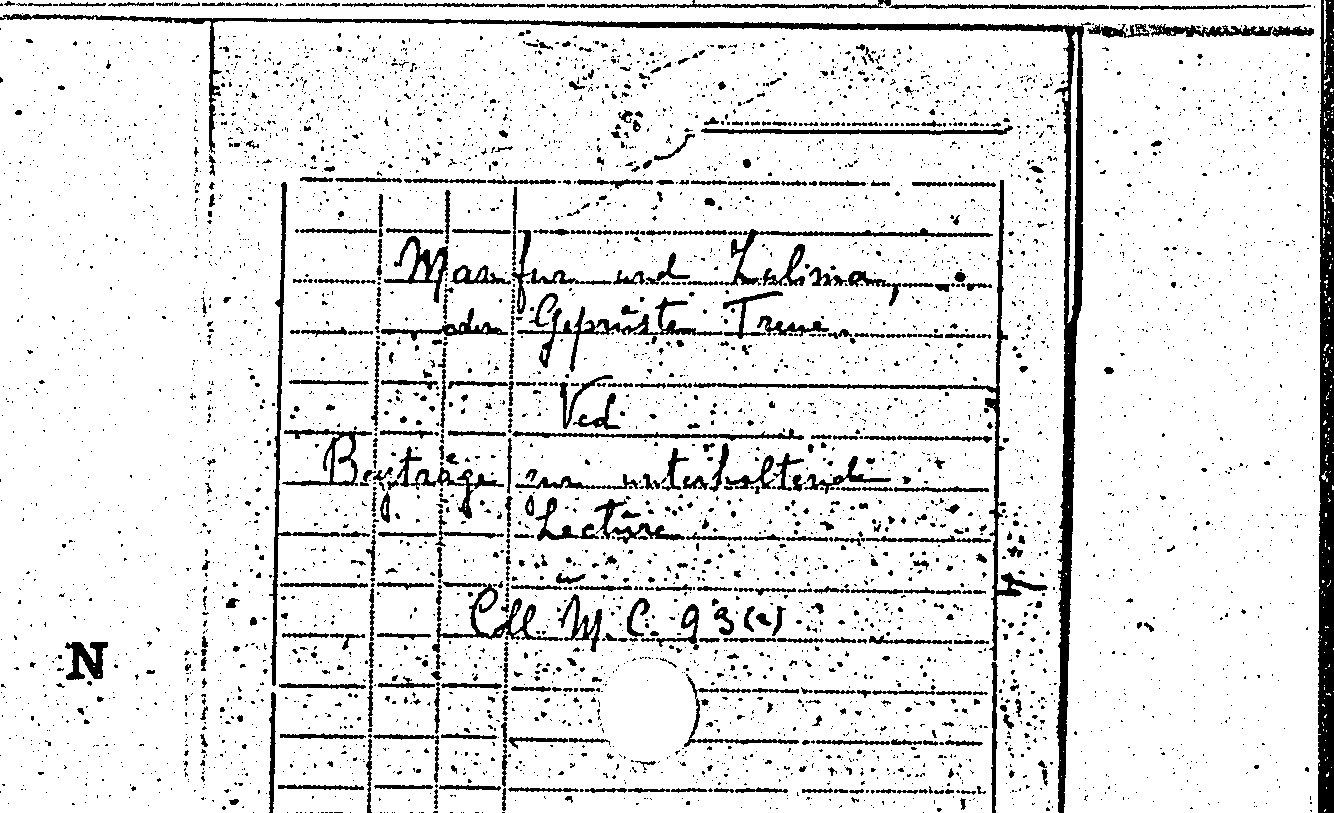 Manfur und Zulima,
oder Geprüfte Treue.
Vid.
Beyträge zur unterhaltende
Lectüre
in
Coll M. C. 93(2)
N